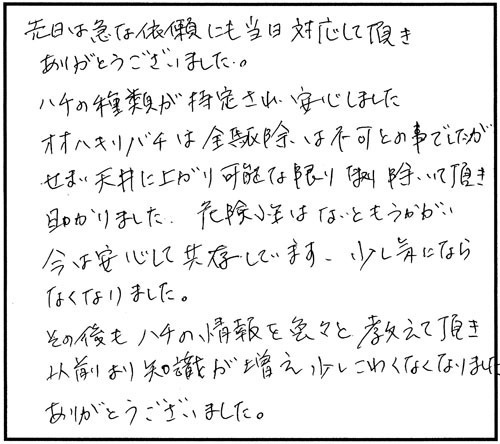 先日は急な依頼にも当日対応して頂き
ありがとうございました。
ハチの種類が特定され安心しました
オオハキリバチは全駆除は不可との事でしたが
せまい天井に上がり可能な限り駆除いて頂き
助かりました。危険性はないともうかがい
今は安心して共存しています、少し気になら
なくなりました。
その後もハチの情報を色々と教えて頂き
以前より知識が増え少しこわくなくなりました
ありがとうございました。